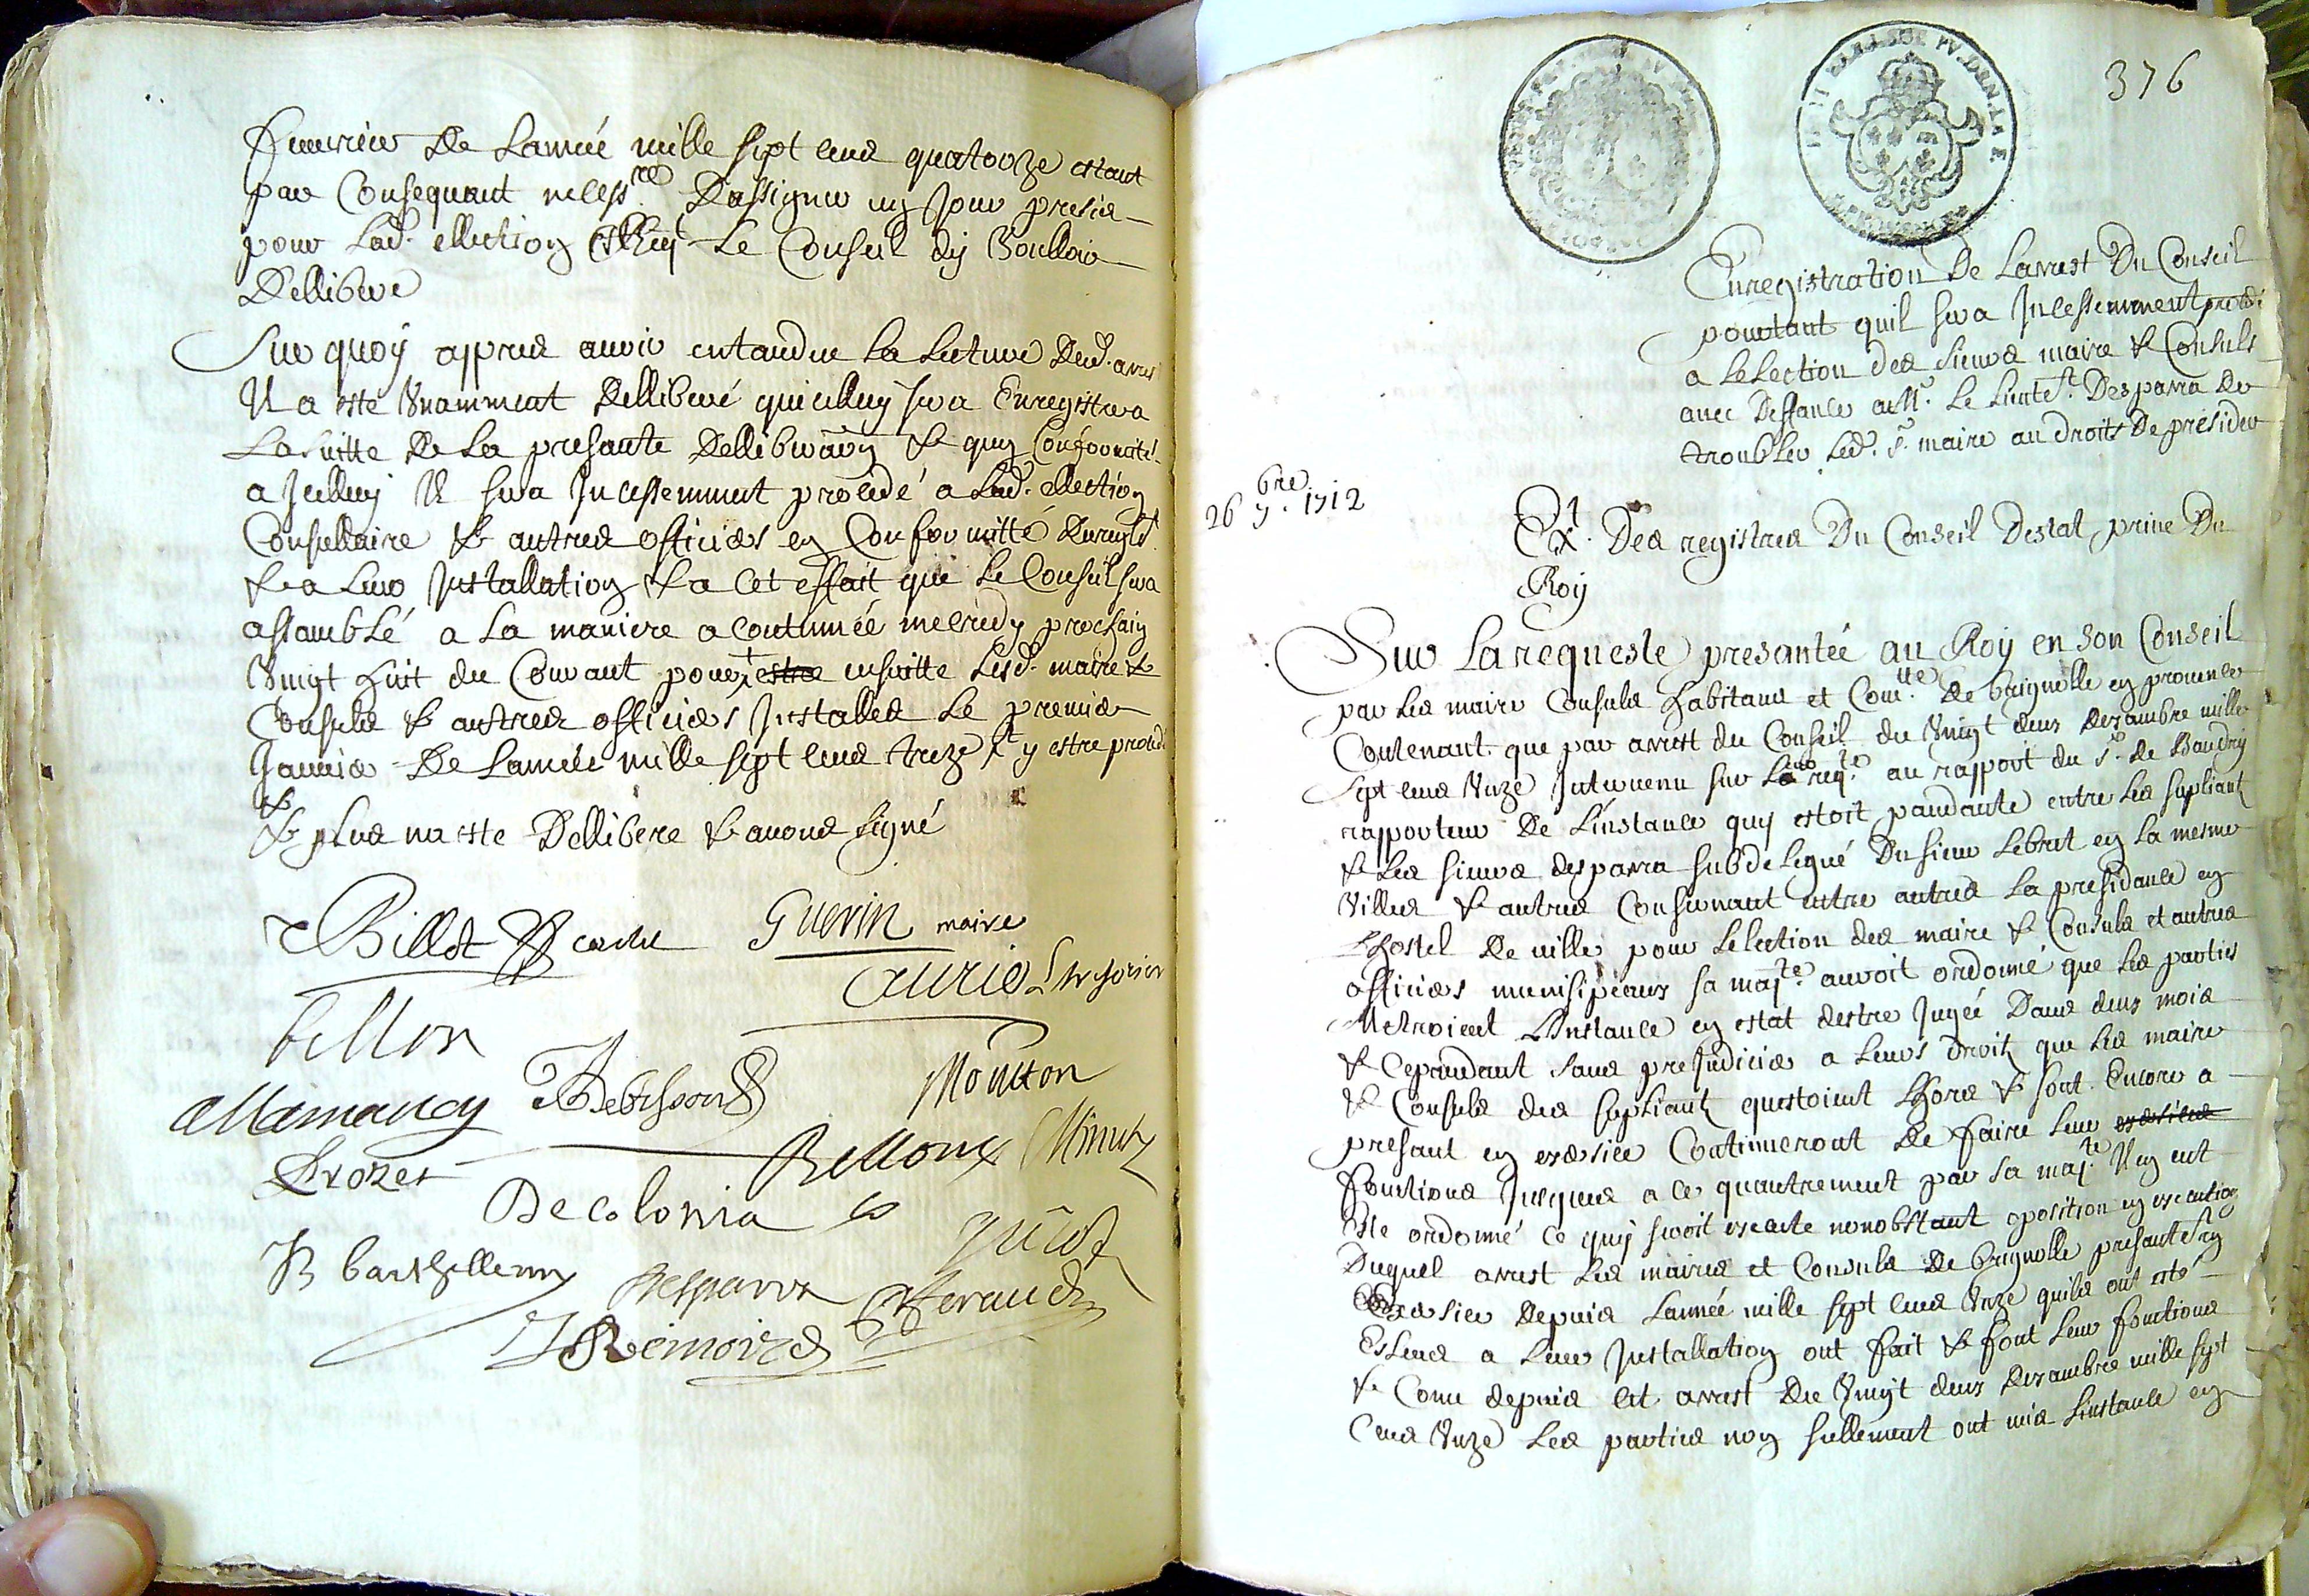 feuvrier de l'année mille sept cens quatorze estant
par consequant necessre. d'assigner un jour presis
pour lad. ellection Et quil le Conseil dy voulloir
dellibere
Sur quoy appres auoir entandue la lecture dud. arrest
Il a este Unanimment dellibere quicelluy sera Enregistrea
La suitte de la presante dellibera͠on & quen Conformité
a Jcelluy Il sera Jncessemment procede a lad. ellection
Consullaire & autres officiers en Conformitté du reglt.
& a leur Jnstallation & a cet effait que le Conseil sera
assamblé a la maniere acoutumée mecredy prochain
Vingt huit du Courant pour + estre ensuitte lesd. maire &
Consuls & autres officiers Jnstalles le premier
Janvier de l'année mille sept cens treze + y estre procedé
&
& plus na este Dellibere & auons signé
Billot
Guerin maire
auric tresorier
bellon
Debesson
Moutton
Mamancy
Bellon Minuty
Crozet
Decolonia
B barthellemy
desparra
Geraud
J Remoire
376
Enregistration de l'arrest du Conseil
pourtant quil sera Jncessemment procedé
a l'election des sieurs maire & Consuls
auec deffance au Sr. le Lieutet. Desparra de
troubler led. Sr. maire au droits de presider
26 9bre. 1712
Ext. des registres du Conseil destat priué du
Roy
Sur la requeste presantée au Roy en son Conseil
par les maire Consuls habitans et Comtte. de brignolle en prouence
Contenant que par arrest du Conseil du Vingt deux dezambre mille
sept cens Vnze Jnteruenu sur la reqte. au rapport du Sr. de Baudry
rapporteur de l'instance quy estoit pandante entre les supliantz
& les sieurs desparra subdelegué du sieur Lebret en la mesme
Ville & autres Consernant entre autres la presidance en
l'hostel de ville pour l'election des maire & Consuls et autres
officiers munisipeaux sa majte. auroit ordonné que les parties
Metroient L'instance en estat destre Jugée dans deux mois
& Cepandant sans prejudicier a leurs droitz que les maire
& Consuls des supliantz questoient lhors & sont Encore a
presant en exersice Continueront de faire leur exersices
fonctions Jusques a ce quautrement par sa majte. Il en eut
este ordonné ce quy seroit execute nonobstant oposition en execution
Duquel arrest les maires et Consuls de brignolle presantet en
Exersice depuis l'année mille sept cens Vnze quils ont esté
Esleus a leur Jnstallation ont fait & font leur fonctions
& Come depuis cet arrest du Vingt deux dezambre mille sept
Cens Vnze les parties non sullement ont mis l'instance en